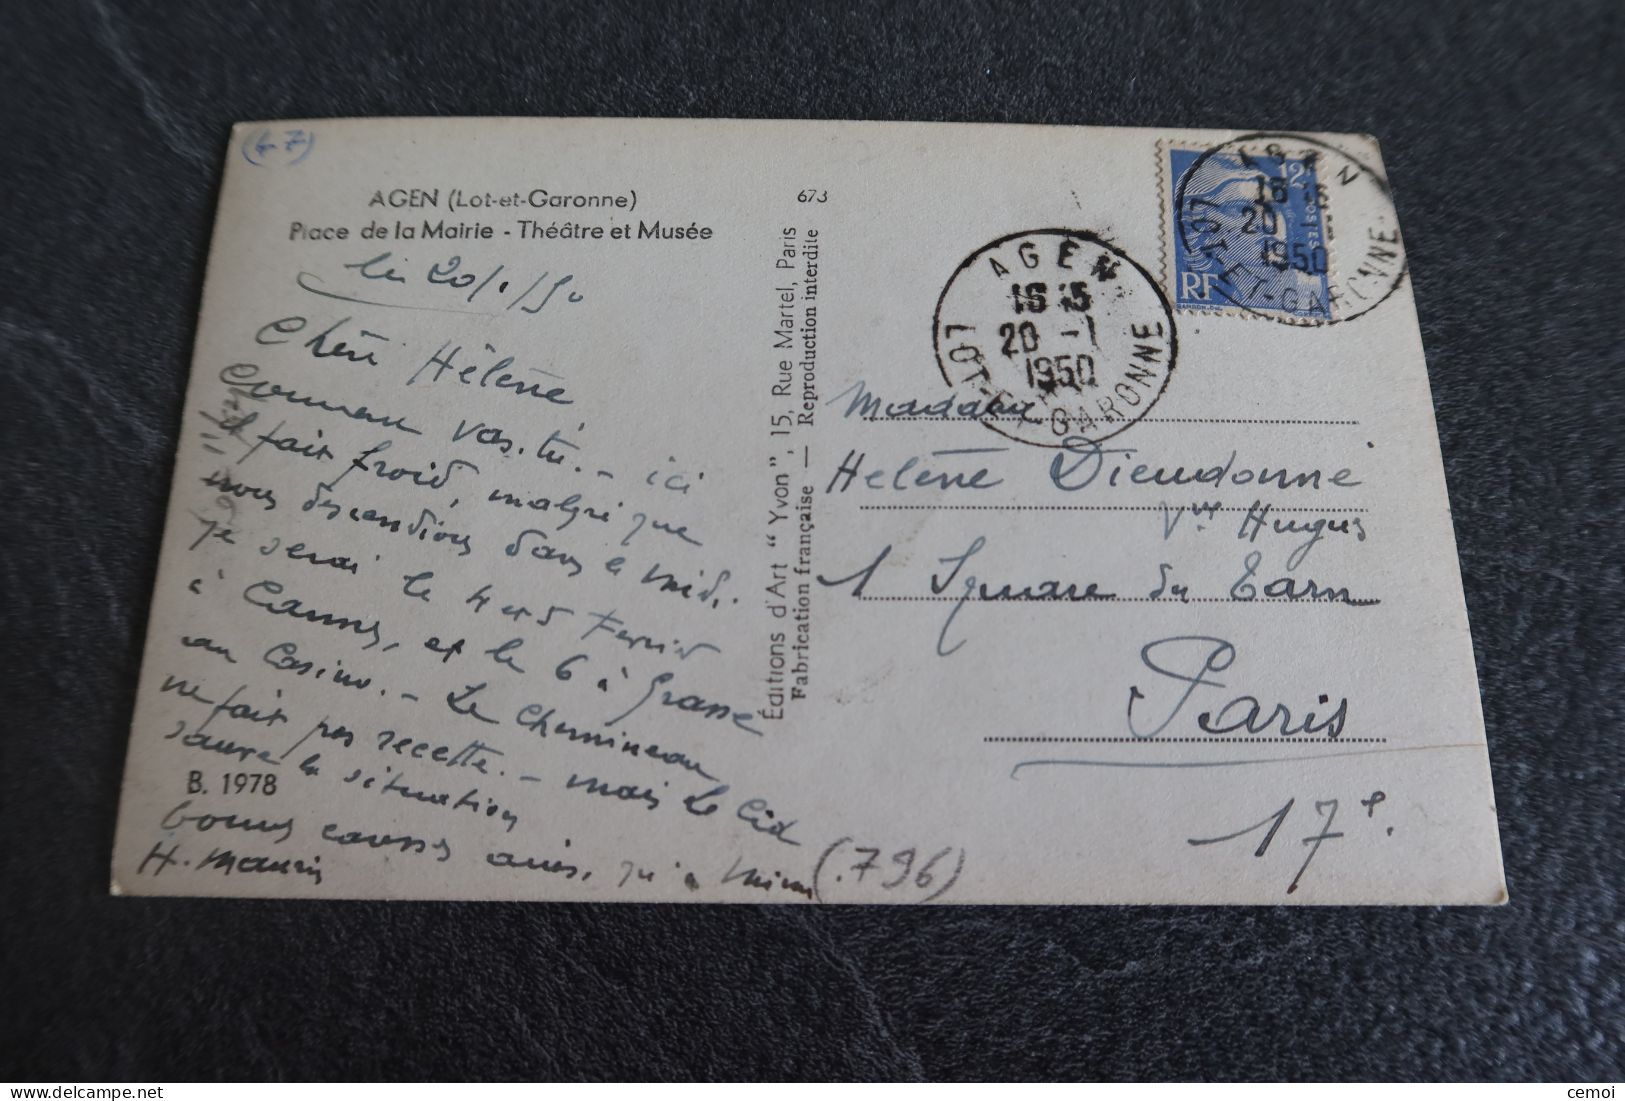 (47)
AGEN (Lot-et-Garonne)
Place de la Mairie - Théâtre et Musée
673
le 20/1/50
Chère Hélène,
Comment vas-tu. - ici
il fait froid, malgré que
nous descendions dans le midi.
je serai le 4 et 5 Fevrier
à Cannes, et le 6 à Grasse
au Casino. - Le Chemineau
ne fait pas recette. - mais Le Cid
sauve la situation
bonnes amies,
H. Maurin
B. 1978
Éditions d'Art "Yvon", 15, Rue Martel, Paris
Fabrication française — Reproduction interdite
AGEN
16 15
20 -1
1950
LOT-ET-GARONNE
12F
POSTES
RF
AGEN
16 15
20 -1
1950
LOT-ET-GARONNE
Madame
Helène Dieudonné
Vve Hugues
1 Square du Tarn
Paris
17e.
(.796)
cemoi